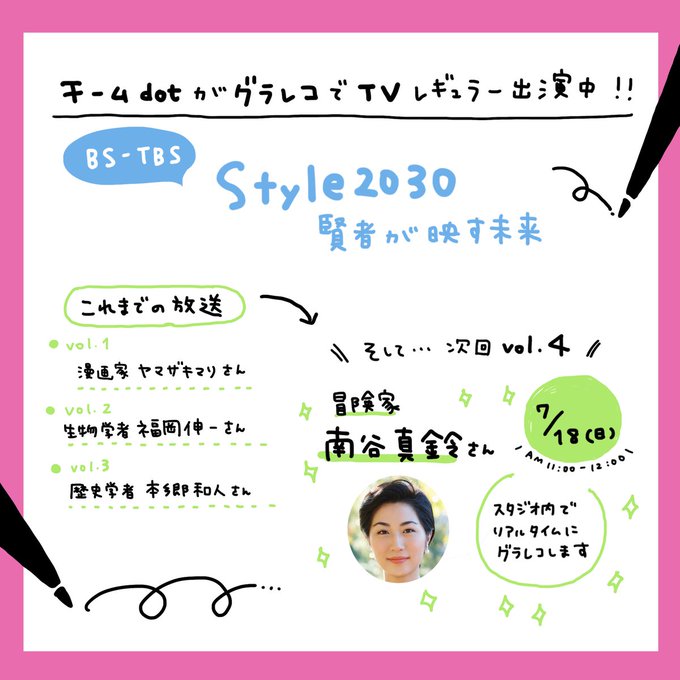 チームdotがグラレコでTVレギュラー出演中!!
BS-TBS
Style2030
賢者が映す未来
これまでの放送
vol.1
漫画家 ヤマザキマリさん
vol.2
生物学者 福岡伸一さん
vol.3
歴史学者 本郷和人さん
そして… 次回 vol.4
冒険家
南谷真鈴さん
7/18(日)
AM11:00-12:00
スタジオ内で
リアルタイムに
グラレコします